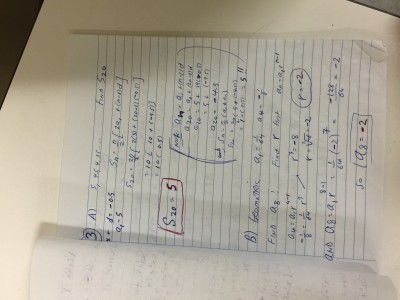 ③ A) 5, 4.5, 4, 3.5, ... Find S20
d = -0.5
a1 = 5
S20 = n/2 [2a1 + (n-1)d]
S20 = 20/2 [2(5) + (20-1)(-0.5)]
= 10 (10 + (-9.5))
= 10 (0.5)
S20 = 5
Note: a20 = a1 + (n-1)d
a20 = 5 + (19)(-0.5)
a20 = 5 + (-9.5)
a20 = -4.5
= 5!!
B) Geometric a1 = 1/64 a4 = -1/8
Find a8: Find r first an = a1 r^n-1
a4 = a1 r^4-1
-1/8 = 1/64 r^3 r^3 = -8
r = ∛-8 = -2 r = -2
and a8 = a1 r^8-1 = 1/64 (-2)^7 = -128/64 = -2
so a8 = -2